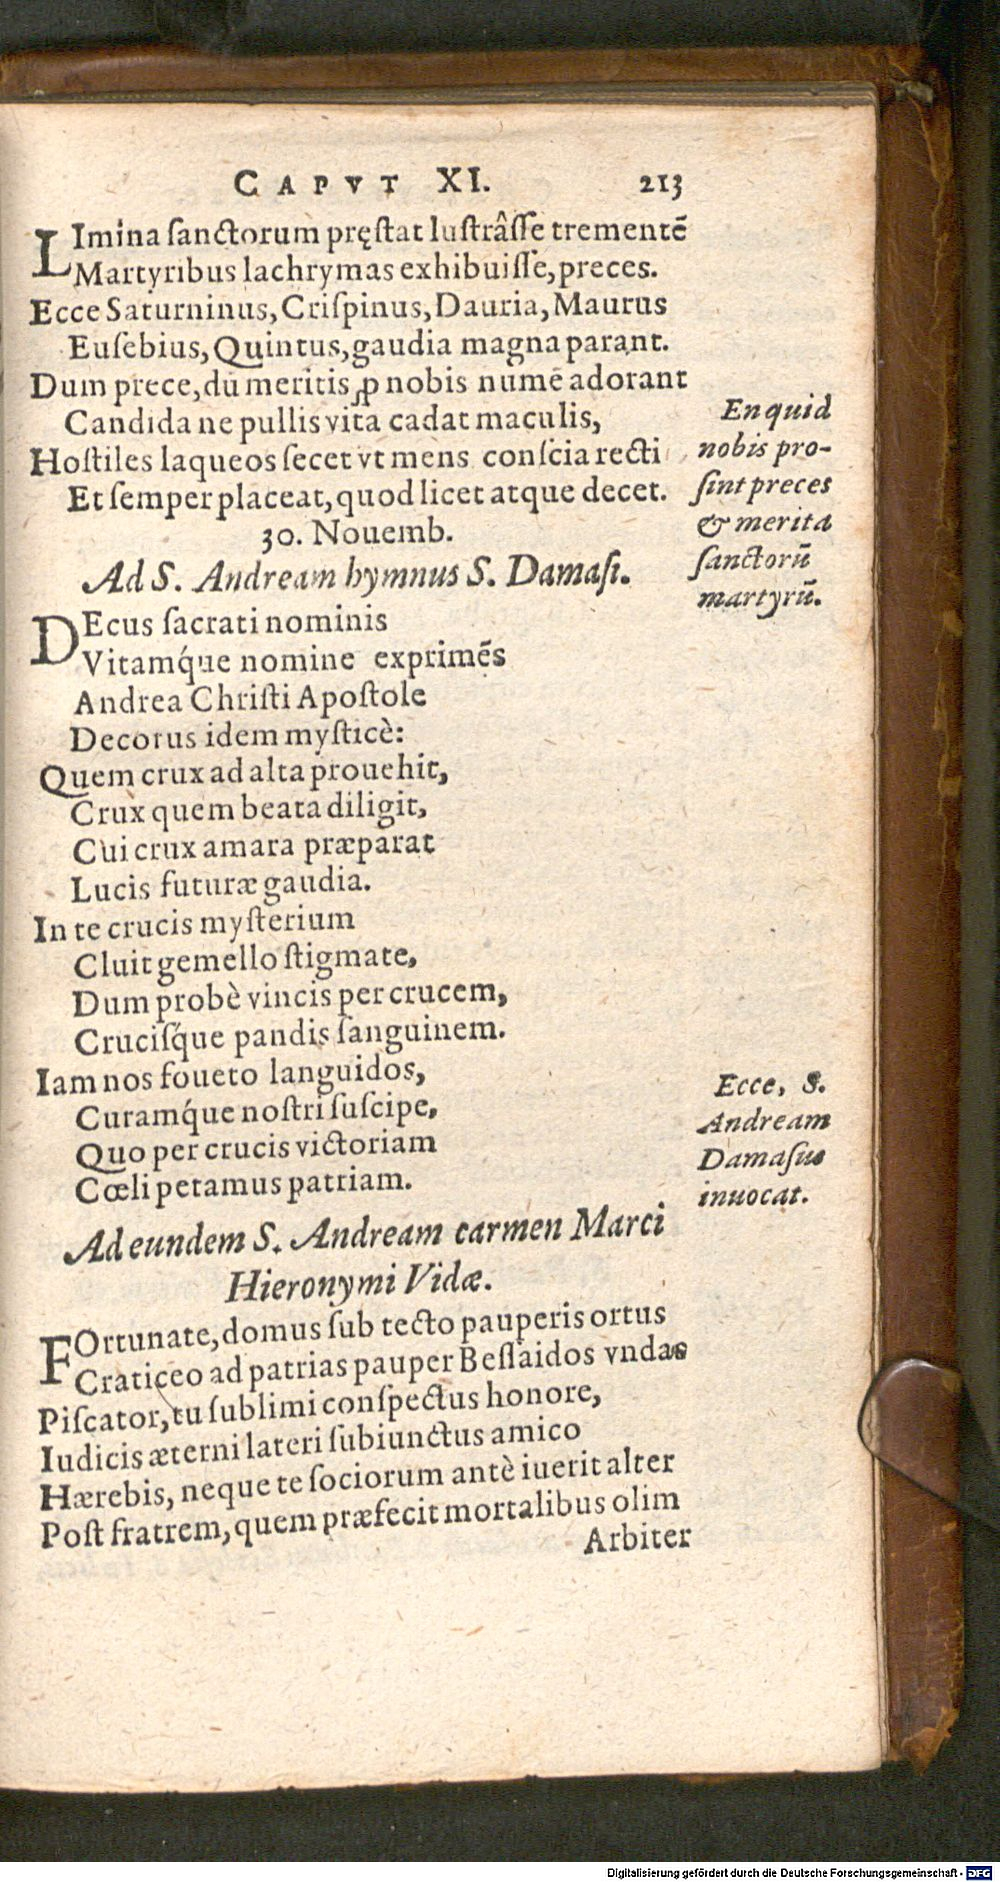 CAPVT XI. 213
LImina sanctorum pręstat lustrâsse trementē
Martyribus lachrymas exhibuisse, preces.
Ecce Saturninus, Crispinus, Dauria, Maurus
Eusebius, Quintus, gaudia magna parant.
Dum prece, dū meritis ꝓ nobis numē adorant
Candida ne pullis vita cadat maculis,
Hostiles laqueos secet vt mens conscia recti
Et semper placeat, quod licet atque decet.
En quid
nobis pro-
sint preces
& merita
sanctorū
martyrū.
30. Nouemb.
Ad S. Andream hymnus S. Damasi.
DEcus sacrati nominis
Vitamq́ue nomine exprimēs
Andrea Christi Apostole
Decorus idem mysticè:
Quem crux ad alta prouehit,
Crux quem beata diligit,
Cui crux amara præparat
Lucis futuræ gaudia.
In te crucis mysterium
Cluit gemello stigmate,
Dum probè vincis per crucem,
Crucisq́ue pandis sanguinem.
Iam nos foueto languidos,
Curamq́ue nostri suscipe,
Quo per crucis victoriam
Cœli petamus patriam.
Ecce, S.
Andream
Damasius
inuocat.
Ad eundem S. Andream carmen Marci
Hieronymi Vidæ.
FOrtunate, domus sub tecto pauperis ortus
Craticeo ad patrias pauper Bessaidos vndas
Piscator, tu sublimi conspectus honore,
Iudicis æterni lateri subiunctus amico
Hærebis, neque te sociorum antè iuerit alter
Post fratrem, quem præfecit mortalibus olim
Arbiter
Digitalisierung gefördert durch die Deutsche Forschungsgemeinschaft - DFG